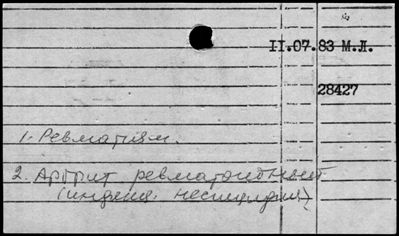 II.07.83 М.Л.
28427
1. Ревматизм.
2. Артрит ревматоидный
(инфекц. неспецифич)